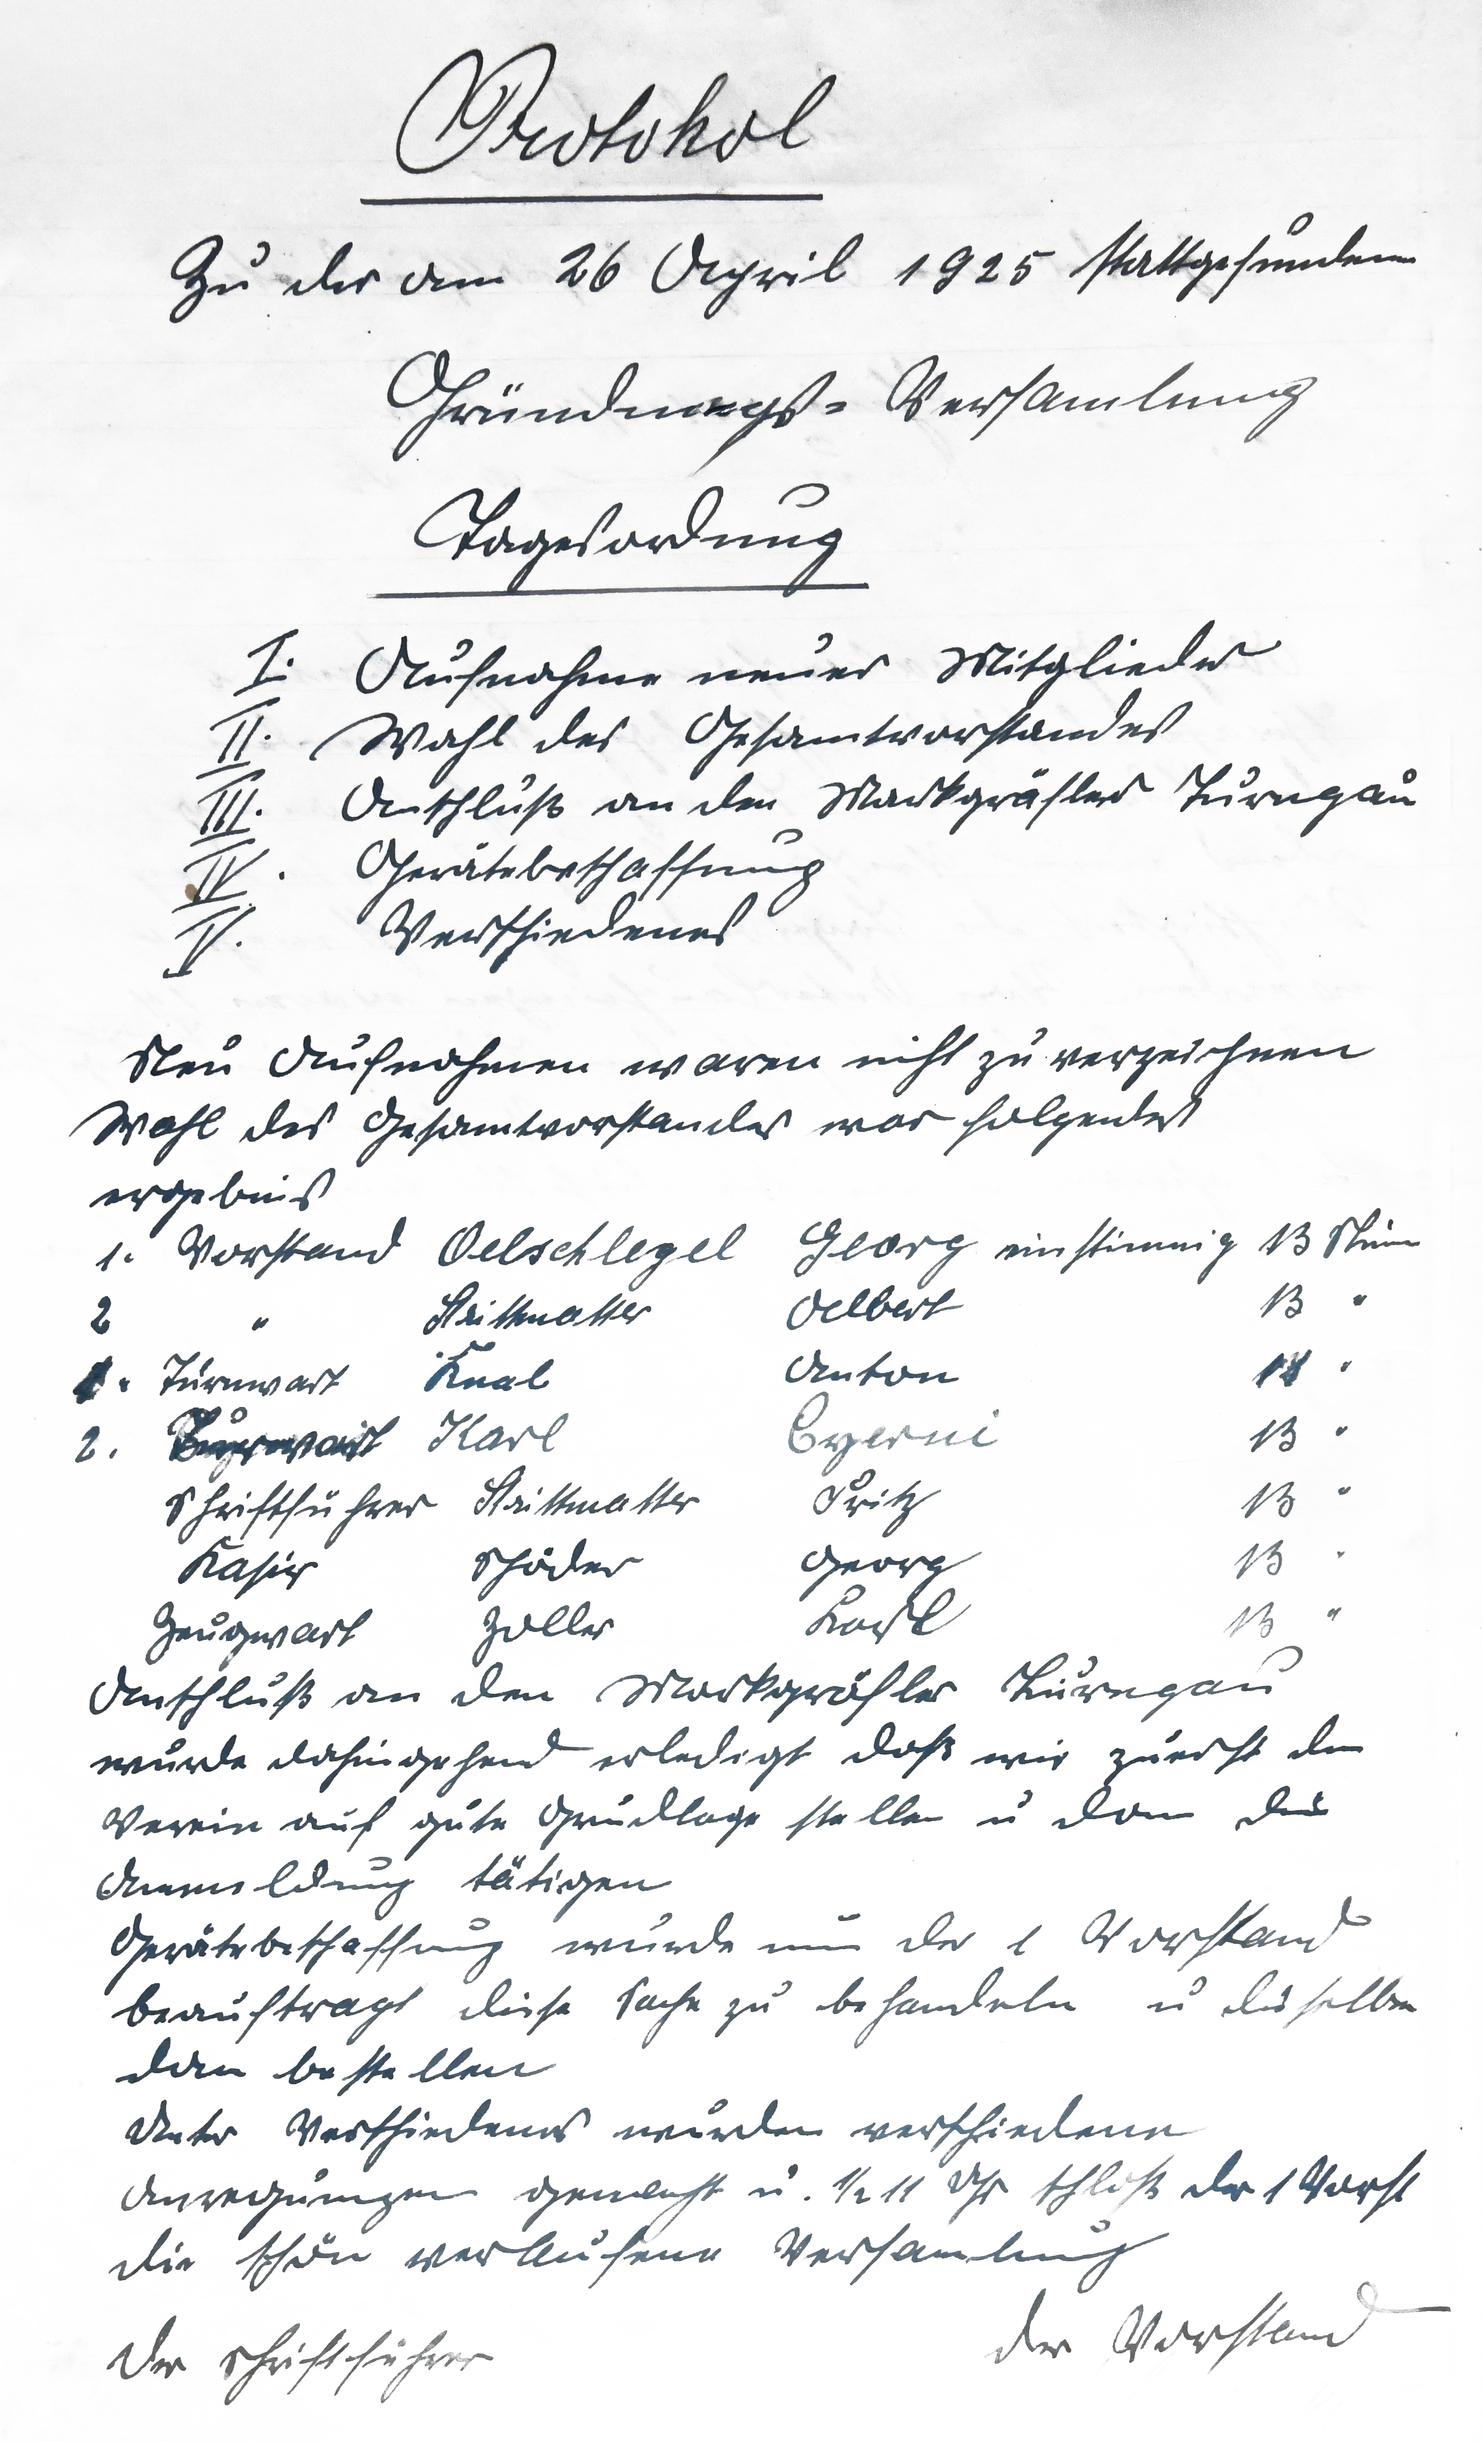 Protokol
Zu der am 26 April 1925 stattgefunden
Gründungs- Versamlung
Tagesordnung
I. Aufnahme neuer Mitglieder
II. Wahl des Gesamtvorstandes
III. Anschluß an den Markgräfler Turngau
IV. Gerätebeschaffung
V. Verschiedenes
Neu Aufnahmen waren nicht zu verzeichnen
Wahl des Gesamtvorstandes war folgendes
ergebnis
1. Vorstand Oelschlegel Georg einstimmig 13 Stim
2 " Strittmatter Albert 13 "
1. Turnwart Knal Anton "
2. Turnwart Karl 13 "
Schriftführer Strittmatter Fritz 13 "
Kasir Schöder Georg 13 "
Zeugwart Zoller Karl 13 "
Anschluß an den Markgräfler Turngau
wurde dahingehend erledigt daß wir zuerst den
Verein auf gute Grudlage stellen u dan die
Anmeldung tätigen
Gerätebeschaffung wurde nun der 1 Vorstand
beauftragt diese Sache zu behandeln u dieselben
dan bestellen
Unter Verschiedenes wurden verschiedene
Anregungen gemacht u. ½ 11 Uhr schloß der 1 Vorst
die schön verlaufene Versamlung
der Vorstand
Der Schriftführer